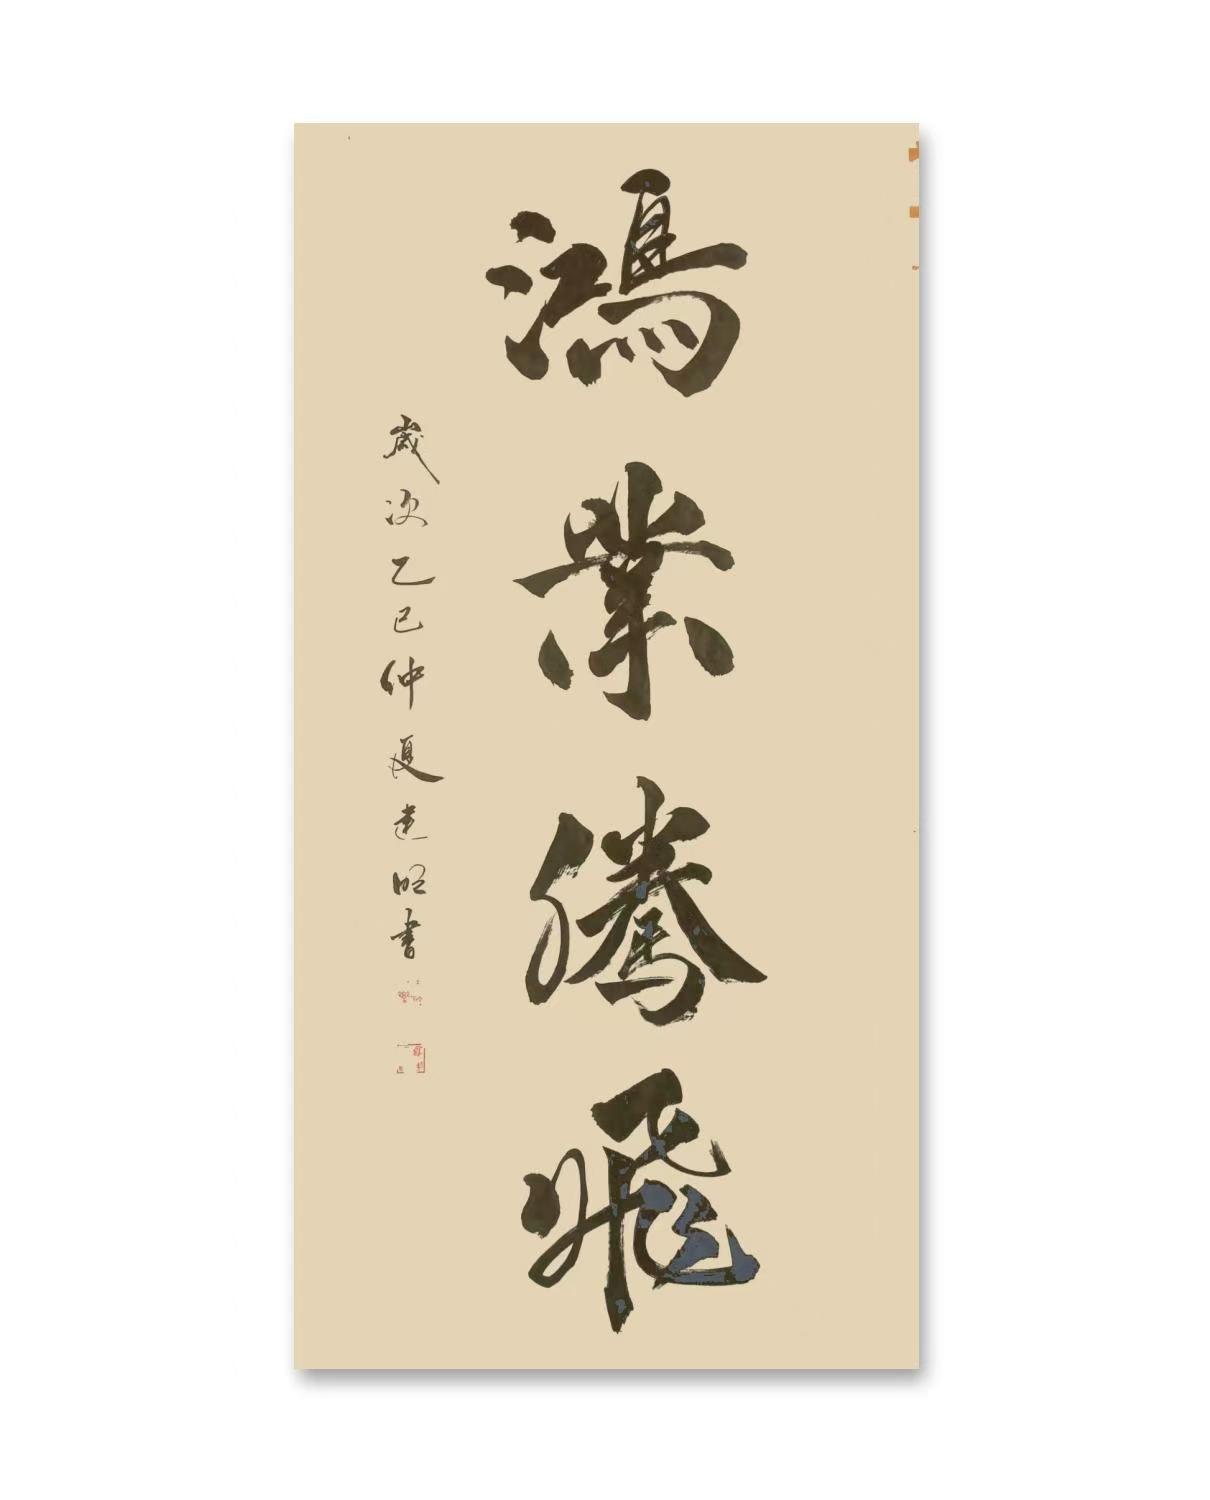 鴻業騰飛
歲次乙巳仲夏建明書